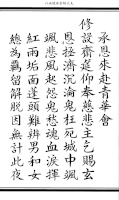 承恩來赴青華會
修設齋筵仰奉慈悲主乞賜玄
恩拯濟沉淪鬼枉死城中狴
颯颯悲風起愁魂血淚揮
紅雨垢面蓬頭難辨男和女
總為羈留解脫因無計此夜